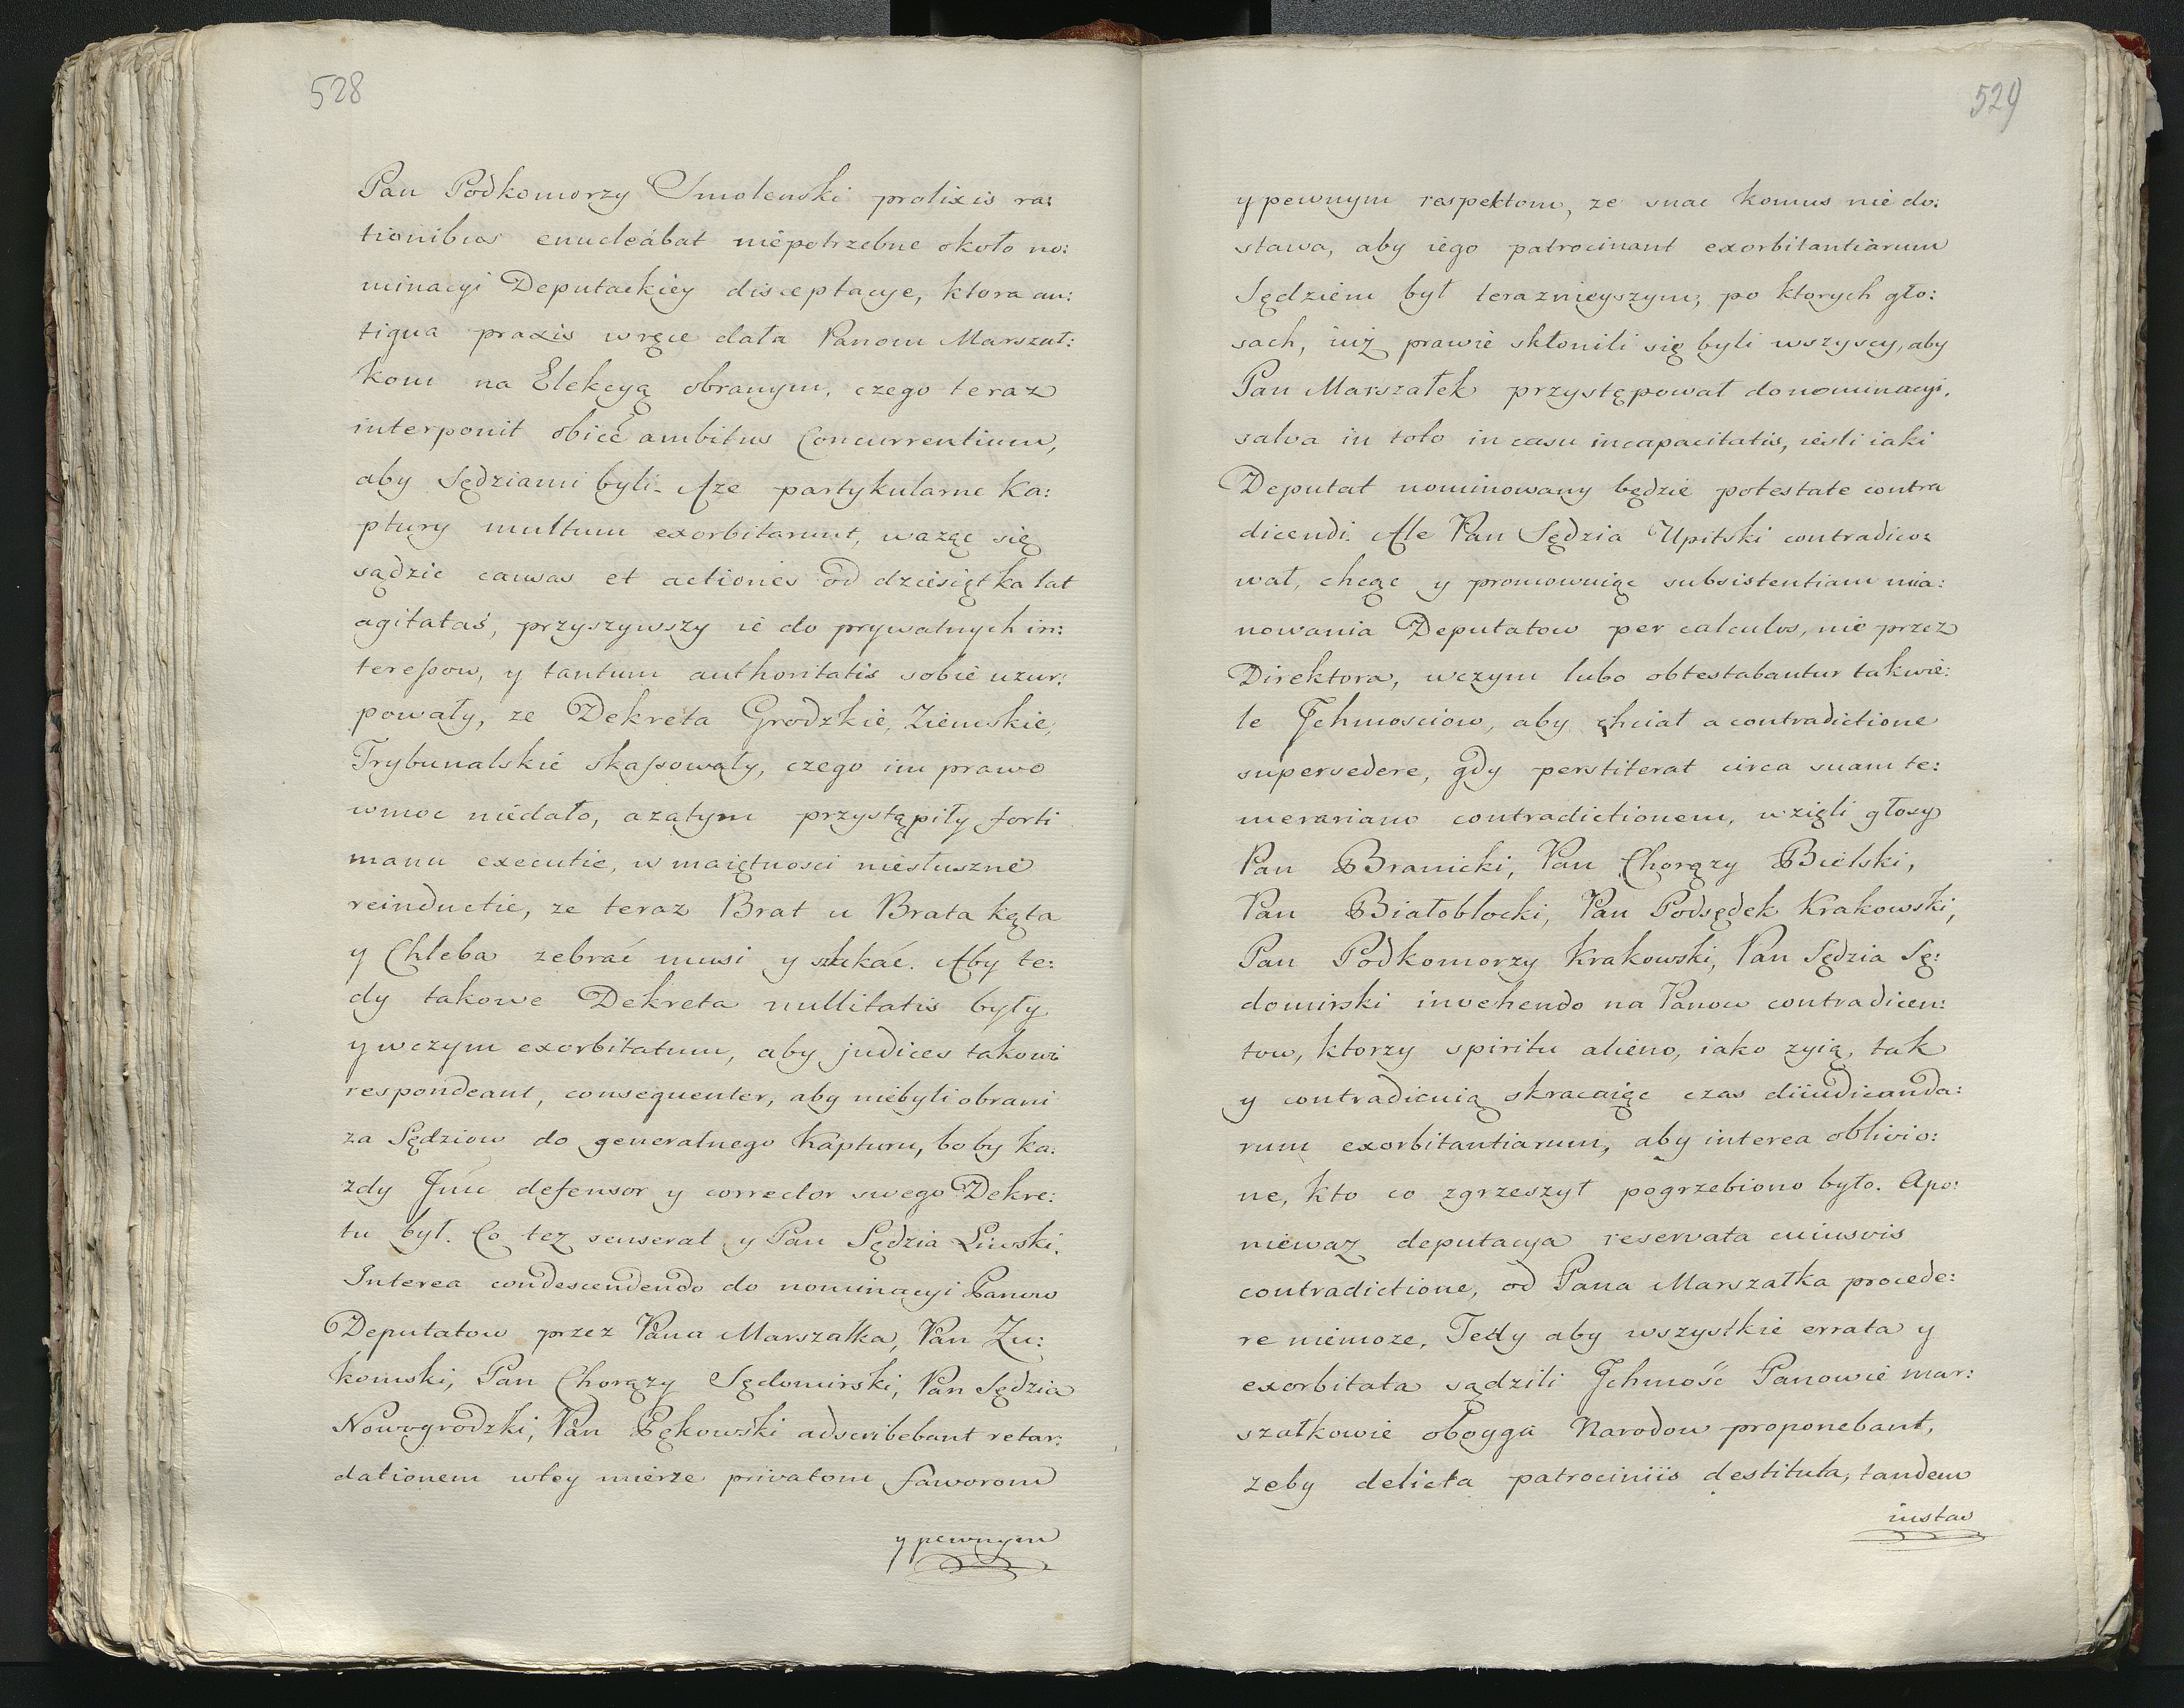 528
Pan Podkomorzy Smolenski prolixis ra:
tionibus enucleábat niepotrzebne około no:
minacyi Deputackiey disceptacye, ktora an:
tiqua praxis wręce dała Panom Marszał:
kom na Elekcyą obranym, czego teraz
interponit obicé ambitus Concurrentium,
aby Sędziami byli. A ze partykularne Ka:
ptury multum exorbitarunt, waząc się
sądzic causas et actiones od dziesiątka lat
agitatas, przyszywszy ie do prywatnych in:
teressow, y tantum authoritatis sobie uzur:
powały, ze Dekreta Grodzkie, Ziemskie,
Trybunalskie skassowały, czego im prawo
wmoc niedało, azatym przystąpiły forti
manu executie, w maiętnosci niesłuszne
reinductie, ze teraz Brat u Brata kąta
y Chleba zebrać musi y szukać. Aby te:
dy takowe Dekreta nullitatis były
ywczym exorbitatum, aby judices takowi
respondeant, consequenter, aby niebyli obrani
za Sędziow do generalnego Kapturu, bo by ka:
zdy Jmć defensor y corrector swego Dekre:
tu był. Co tez senserat y Pan Sędzia Liwski.
Interea condescendendo do nominacyi Panow
Deputatow przez Pana Marszałka, Pan Zu:
kowski, Pan Chorązy Sędomirski, Pan Sędzia
Nowogrodzki, Pan Pękowski adscribebant retar:
dationem wtey mierze privatom faworom
y pewnym
529
y pewnym respektom, ze snac komus nie do:
stawa, aby iego patrocinant exorbitantiarum
Sędziem był teraznieyszym; po ktorych gło:
sach, iuz prawie skłonili się byli wszyscy, aby
Pan Marszałek przystępował do nominacyi,
salva in toto in casu incapacitatis, iesli iaki
Deputat nominowany będzie potestate contra
dicendi. Ale Pan Sędzia Upitski contradico:
wał, chcąc y promowuiąc subsistentiam mia:
nowania Deputatow per calculos, nie przez
Direktora, wczym lubo obtestabantur takwie:
le Jchmosciow, aby chciał a contradictione
supersedere, gdy perstiterat circa suam te:
merariam contradictionem, wzięli głosy
Pan Branicki, Pan Chorązy Bielski,
Pan Białobłocki, Pan Podsędek Krakowski,
Pan Podkomorzy Krakowski, Pan Sędzia Sę:
domirski invehendo na Panow contradicen:
tow, ktorzy spiritu alieno, iako zyią, tak
y contradicuią skracaiąc czas diiudicanda:
rum exorbitantiarum, aby interea oblivio:
ne, kto co zgrzeszył pogrzebiono było. Apo:
niewaz deputacya reservata cuiusvis
contradictione, od Pana Marszałka procede:
re niemoze, Tedy aby wszystkie errata y
exorbitata sądzili Jchmość Panowie mar:
szałkowie oboyga Narodow proponebant,
zeby delicta patrociniis destituta, tandem
iustas